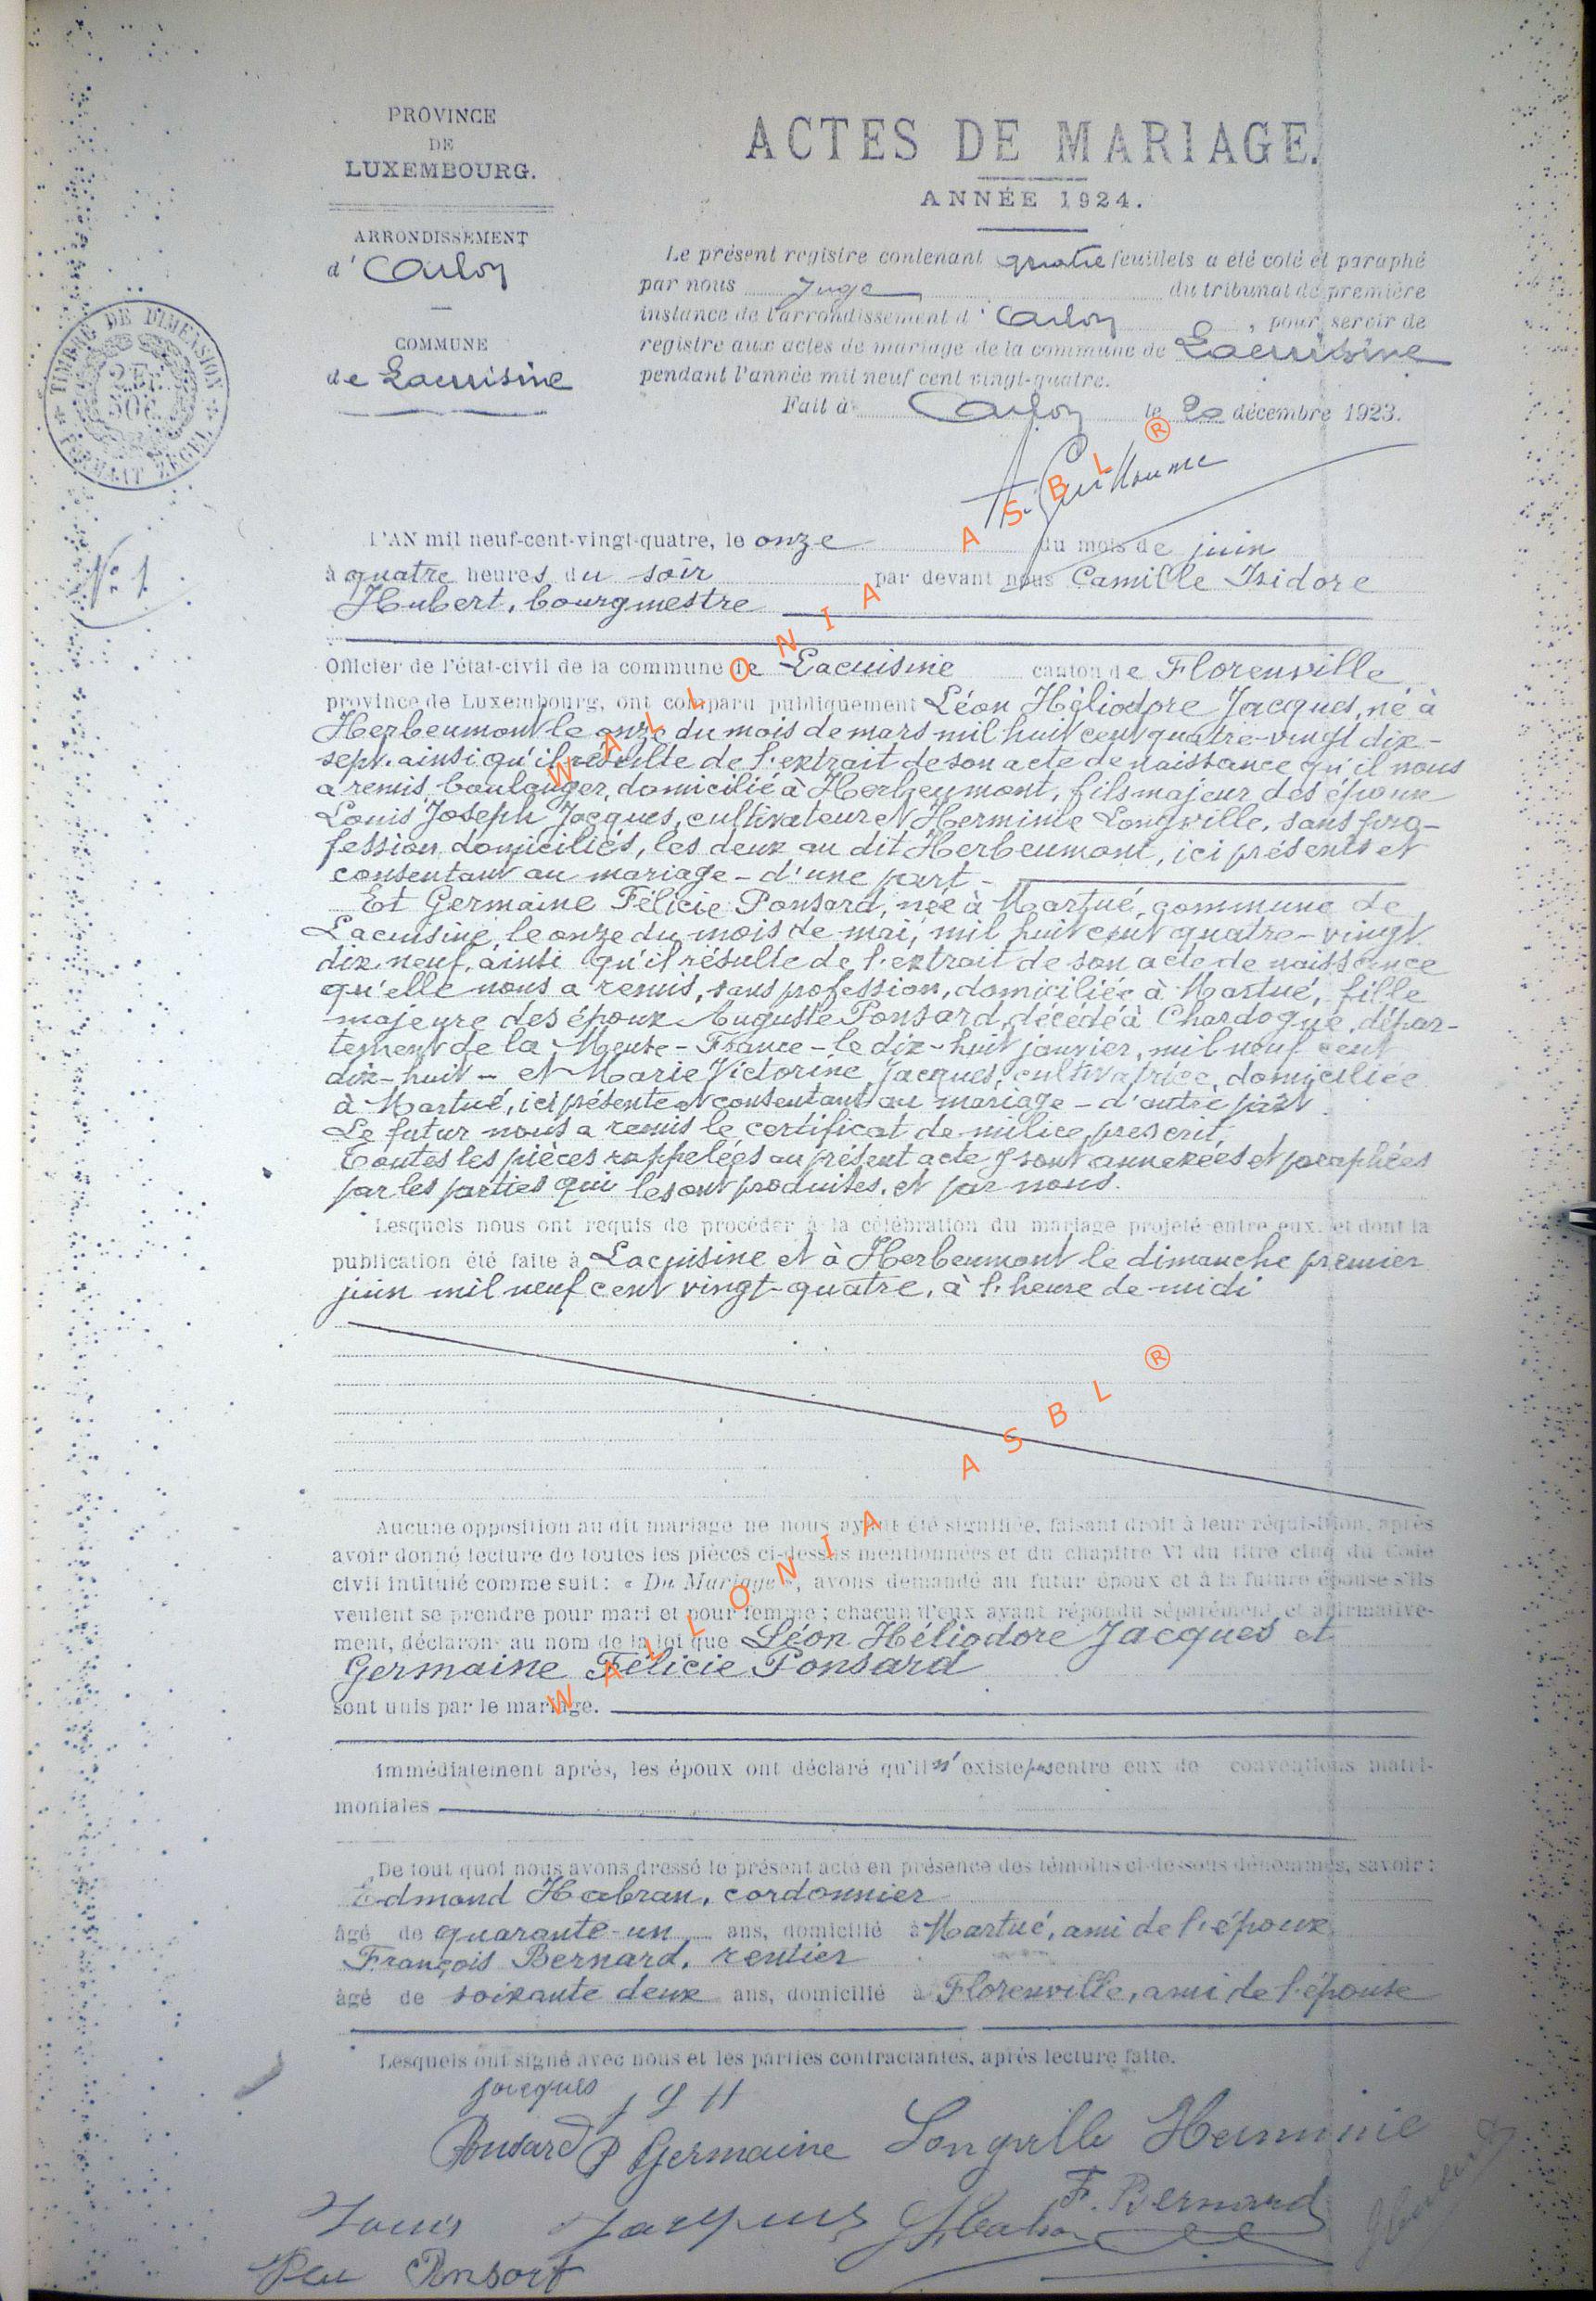 PROVINCE
DE
LUXEMBOURG.
ARRONDISSEMENT
d' Arlon
COMMUNE
de Lacuisine
TIMBRE DE DIMENSION
FORMAAT ZEGEL
N° 1
ACTES DE MARIAGE.
ANNÉE 1924.
Le présent registre contenant quatre feuillets a été coté et paraphé
par nous Juge du tribunal de première
instance de l'arrondissement d' Arlon, pour servir de
registre aux actes de mariage de la commune de Lacuisine
pendant l'année mil neuf cent vingt-quatre.
Fait à Arlon le 20 décembre 1923.
A. Guillaume
L'AN mil neuf-cent-vingt-quatre, le onze du mois de juin
à quatre heures du soir par devant nous Camille Isidore
Hubert, bourgmestre
Officier de l'état-civil de la commune de Lacuisine canton de Florenville
province de Luxembourg, ont comparu publiquement Léon Héliodore Jacques, né à
Herbeumont le onze du mois de mars mil huit cent quatre-vingt dix-
sept, ainsi qu'il résulte de l'extrait de son acte de naissance qu'il nous
a remis, boulanger, domicilié à Herbeumont, fils majeur des époux
Louis Joseph Jacques, cultivateur et Herminie Longville, sans pro-
fession, domiciliés, les deux au dit Herbeumont, ici présents et
consentant au mariage - d'une part -
Et Germaine Félicie Ponsard, née à Martué, commune de
Lacuisine, le onze du mois de mai, mil huit cent quatre-vingt
dix neuf, ainsi qu'il résulte de l'extrait de son acte de naissance
qu'elle nous a remis, sans profession, domiciliée à Martué, fille
majeure des époux Auguste Ponsard, décédé à Chardogne, dépar-
tement de la Meuse - France - le dix-huit janvier, mil neuf cent
dix-huit - et Marie Victorine Jacques, cultivatrice, domiciliée
à Martué, ici présente et consentant au mariage - d'autre part
Le futur nous a remis le certificat de milice prescrit,
Toutes les pièces rappelées au présent acte y sont annexées et paraphées
par les parties qui les ont produites, et par nous.
Lesquels nous ont requis de procéder à la célébration du mariage projeté entre eux, et dont la
publication été faite à Lacuisine et à Herbeumont le dimanche premier
juin mil neuf cent vingt-quatre, à l'heure de midi
Aucune opposition au dit mariage ne nous ayant été signifiée, faisant droit à leur réquisition, après
avoir donné lecture de toutes les pièces ci-dessus mentionnées et du chapitre VI du titre cinq du Code
civil intitulé comme suit : « Du Mariage », avons demandé au futur époux et à la future épouse s'ils
veulent se prendre pour mari et pour femme ; chacun d'eux ayant répondu séparément et affirmative-
ment, déclarons au nom de la loi que Léon Héliodore Jacques et
Germaine Félicie Ponsard
sont unis par le mariage.
Immédiatement après, les époux ont déclaré qu'il n'existe pas entre eux de conventions matri-
moniales
De tout quoi nous avons dressé le présent acte en présence des témoins ci-dessous dénommés, savoir :
Edmond Habran, cordonnier
âgé de quarante-un ans, domicilié à Martué, ami de l'époux
François Bernard, rentier
âgé de soixante deux ans, domicilié à Florenville, ami de l'épouse
Lesquels ont signé avec nous et les parties contractantes, après lecture faite.
Jacques
Ponsard Germaine Longville Herminie
Louis Jacques F. Bernard
Ponsart
WALLONIA ASBL ®
WALLONIA ASBL ®